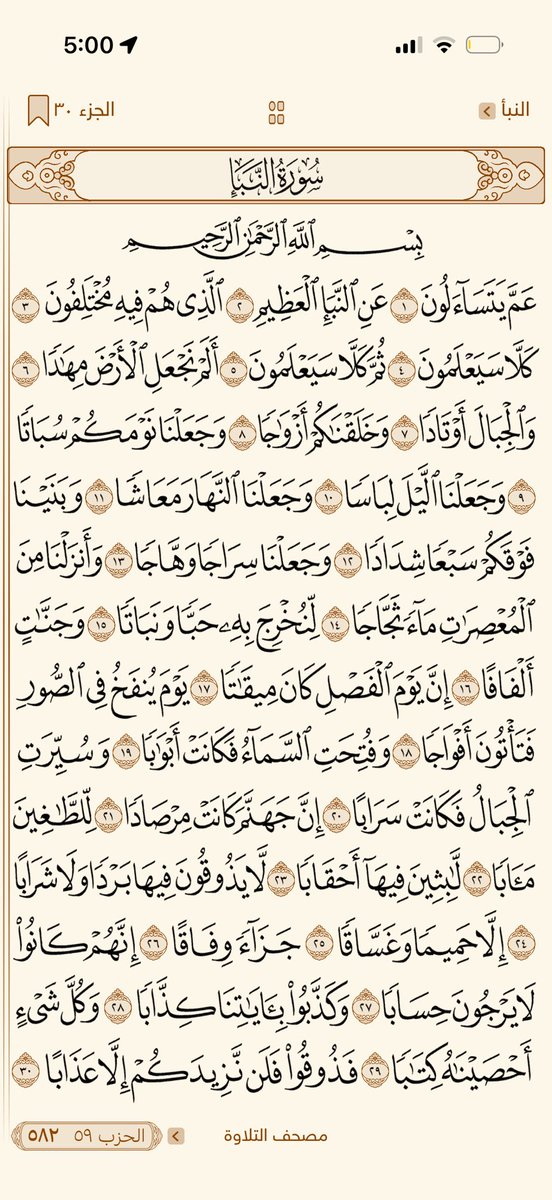 5:00
النبأ
الجزء ٣٠
سُورَةُ النَّبَإِ
بِسْمِ اللَّهِ الرَّحْمَٰنِ الرَّحِيمِ
عَمَّ يَتَسَآءَلُونَ ١ عَنِ النَّبَإِ الْعَظِيمِ ٢ الَّذِي هُمْ فِيهِ مُخْتَلِفُونَ ٣
كَلَّا سَيَعْلَمُونَ ٤ ثُمَّ كَلَّا سَيَعْلَمُونَ ٥ أَلَمْ نَجْعَلِ الْأَرْضَ مِهَٰدًا ٦
وَالْجِبَالَ أَوْتَادًا ٧ وَخَلَقْنَٰكُمْ أَزْوَٰجًا ٨ وَجَعَلْنَا نَوْمَكُمْ سُبَاتًا
٩ وَجَعَلْنَا الَّيْلَ لِبَاسًا ١٠ وَجَعَلْنَا النَّهَارَ مَعَاشًا ١١ وَبَنَيْنَا
فَوْقَكُمْ سَبْعًا شِدَادًا ١٢ وَجَعَلْنَا سِرَاجًا وَهَّاجًا ١٣ وَأَنزَلْنَا مِنَ
الْمُعْصِرَٰتِ مَآءً ثَجَّاجًا ١٤ لِّنُخْرِجَ بِهِۦ حَبًّا وَنَبَاتًا ١٥ وَجَنَّٰتٍ
أَلْفَافًا ١٦ إِنَّ يَوْمَ الْفَصْلِ كَانَ مِيقَٰتًا ١٧ يَوْمَ يُنفَخُ فِي الصُّورِ
فَتَأْتُونَ أَفْوَاجًا ١٨ وَفُتِحَتِ السَّمَآءُ فَكَانَتْ أَبْوَٰبًا ١٩ وَسُيِّرَتِ
الْجِبَالُ فَكَانَتْ سَرَابًا ٢٠ إِنَّ جَهَنَّمَ كَانَتْ مِرْصَادًا ٢١ لِّلطَّٰغِينَ
مَـَٔابًا ٢٢ لَّٰبِثِينَ فِيهَآ أَحْقَابًا ٢٣ لَّا يَذُوقُونَ فِيهَا بَرْدًا وَلَا شَرَابًا
٢٤ إِلَّا حَمِيمًا وَغَسَّاقًا ٢٥ جَزَآءً وِفَاقًا ٢٦ إِنَّهُمْ كَانُوا۟
لَا يَرْجُونَ حِسَابًا ٢٧ وَكَذَّبُوا۟ بِـَٔايَٰتِنَا كِذَّابًا ٢٨ وَكُلَّ شَيْءٍ
أَحْصَيْنَٰهُ كِتَٰبًا ٢٩ فَذُوقُوا۟ فَلَن نَّزِيدَكُمْ إِلَّا عَذَابًا ٣٠
مصحف التلاوة
الحزب ٥٩ ٥٨٢